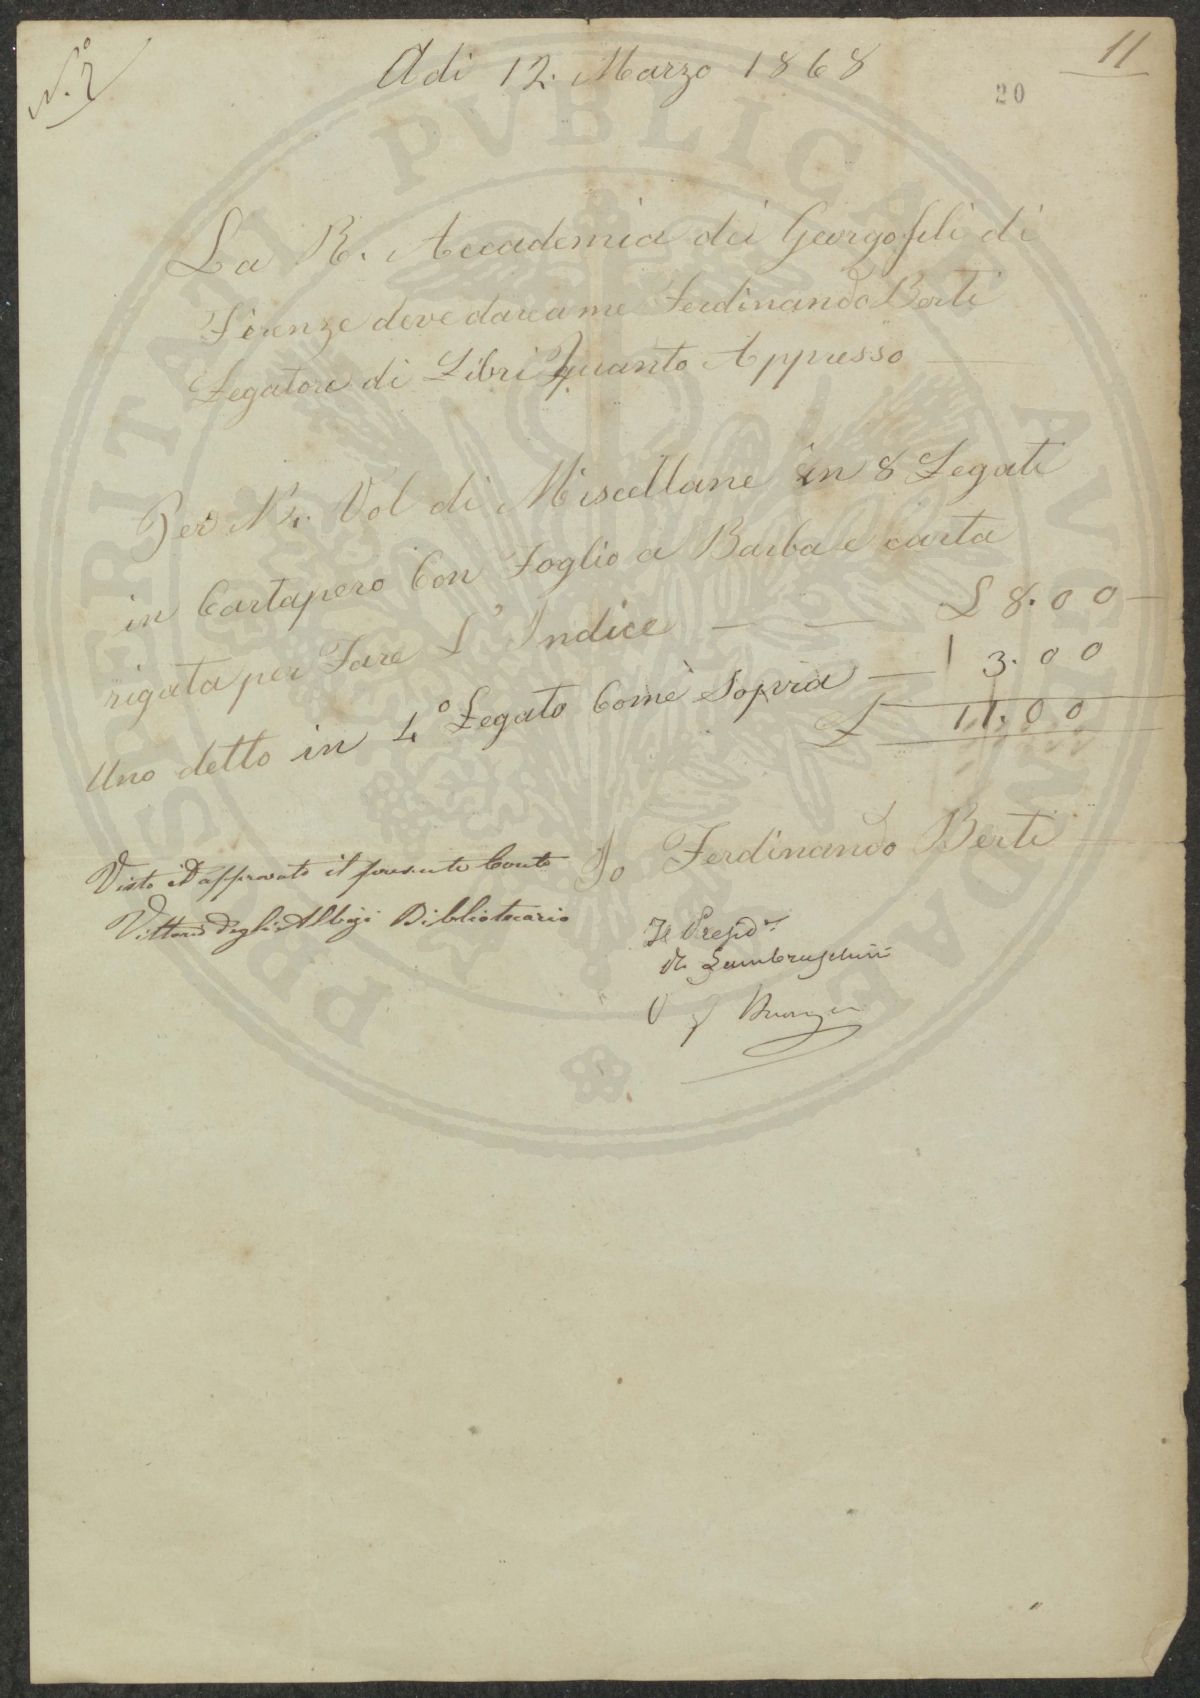 N.º 7
Adi 12. Marzo 1868
11
20
La R. Accademia dei Georgofili di
Firenze deve dare a me Ferdinando Berti
Legatore di Libri quanto Appresso
Per N 4. Vol di Miscellane in 8 Legati
in Cartapero Con Foglio a Barba e carta
rigata per Fare L'Indice — — £ 8.00 —
Uno detto in 4º Legato Come Sopra — 3.00
£ 11.00
Io Ferdinando Berti
Visto ed approvato il presente Conto
Vittorio Degli Albizi Bibliotecario
Il Presid.e
R. Lambruschini
PROSPERITATI PVBLICAE AVGENDAE